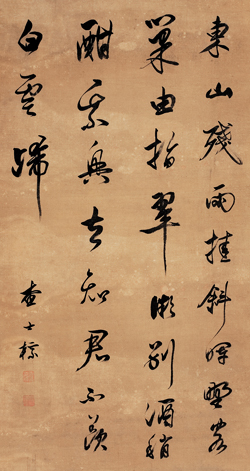 東山殘雨挂斜暉野客
巢由指翠微別酒稍
酣乘興去知君不羨
白雲歸
查士標